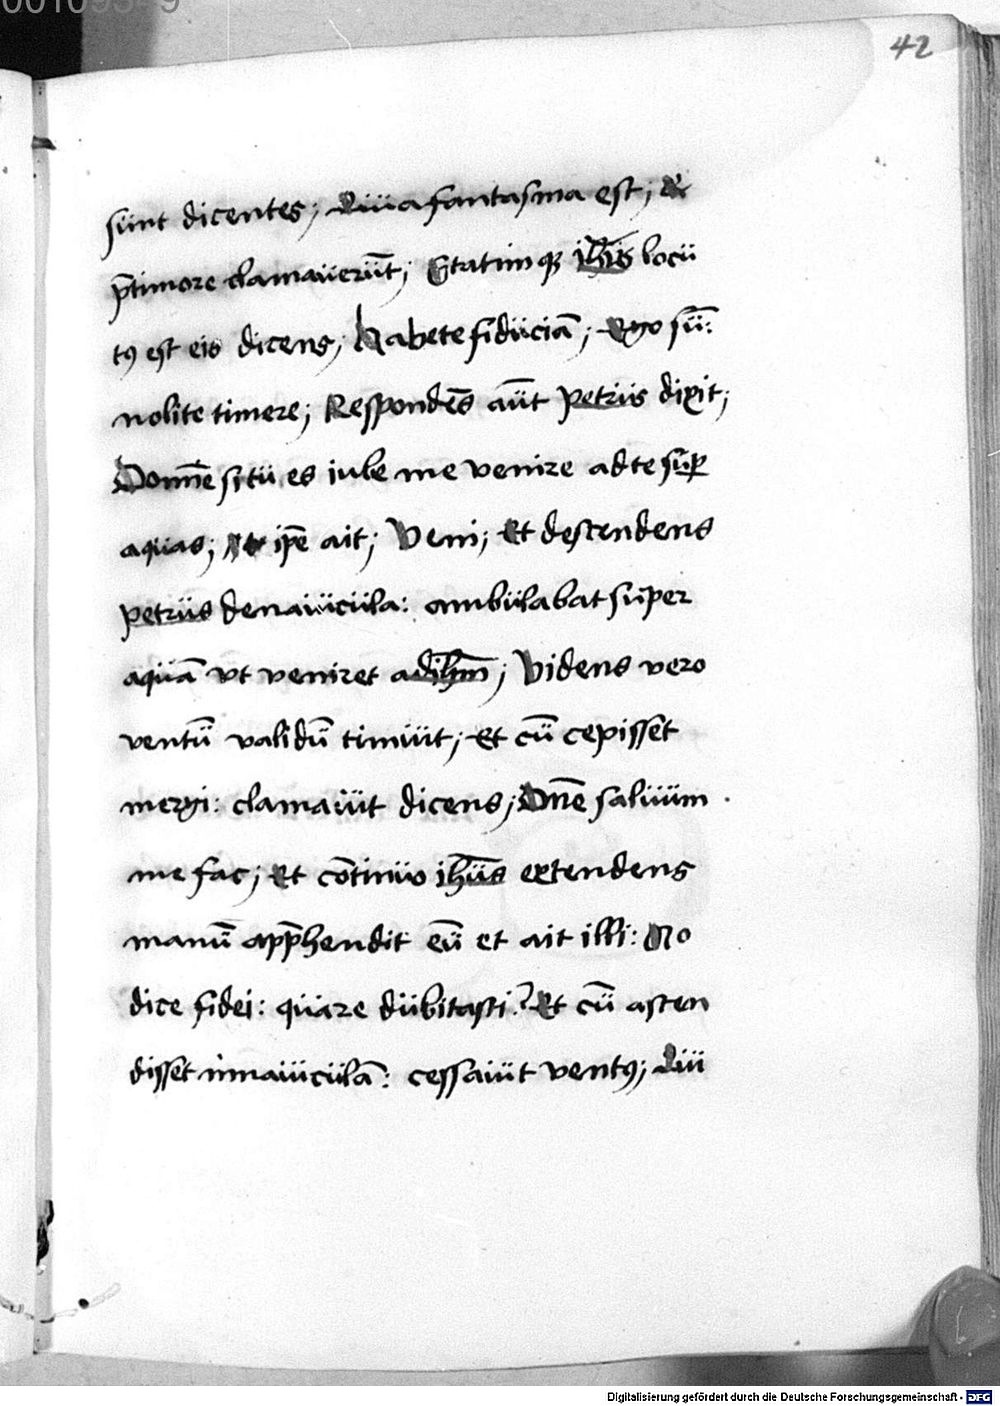 00109349
42
sunt dicentes; Quia fantasma est; Et
p̄ timore clamauerūt; Statimqꝫ ihūs locu
tꝯ est eis dicens; Habete fiduciā; Ego sū:
nolite timere; Respondēs aūt petrus dixit;
Domīe si tu es iube me venire ad te suꝑ
aquas; At ip̄e ait; Veni; Et descendens
petrus de nauicula: ambulabat super
aquā vt veniret ad ihm̄; Videns vero
ventū validū timuit; Et cū cepisset
mergi: clamauit dicens; Dn̄e saluum
me fac; Et cōtinuo ihūs extendens
manū app̄hendit eū et ait illi: Mo
dice fidei: quare dubitasti? Et cū ascen
disset in nauiculā: cessauit ventꝯ; Qui
Digitalisierung gefördert durch die Deutsche Forschungsgemeinschaft - DFG